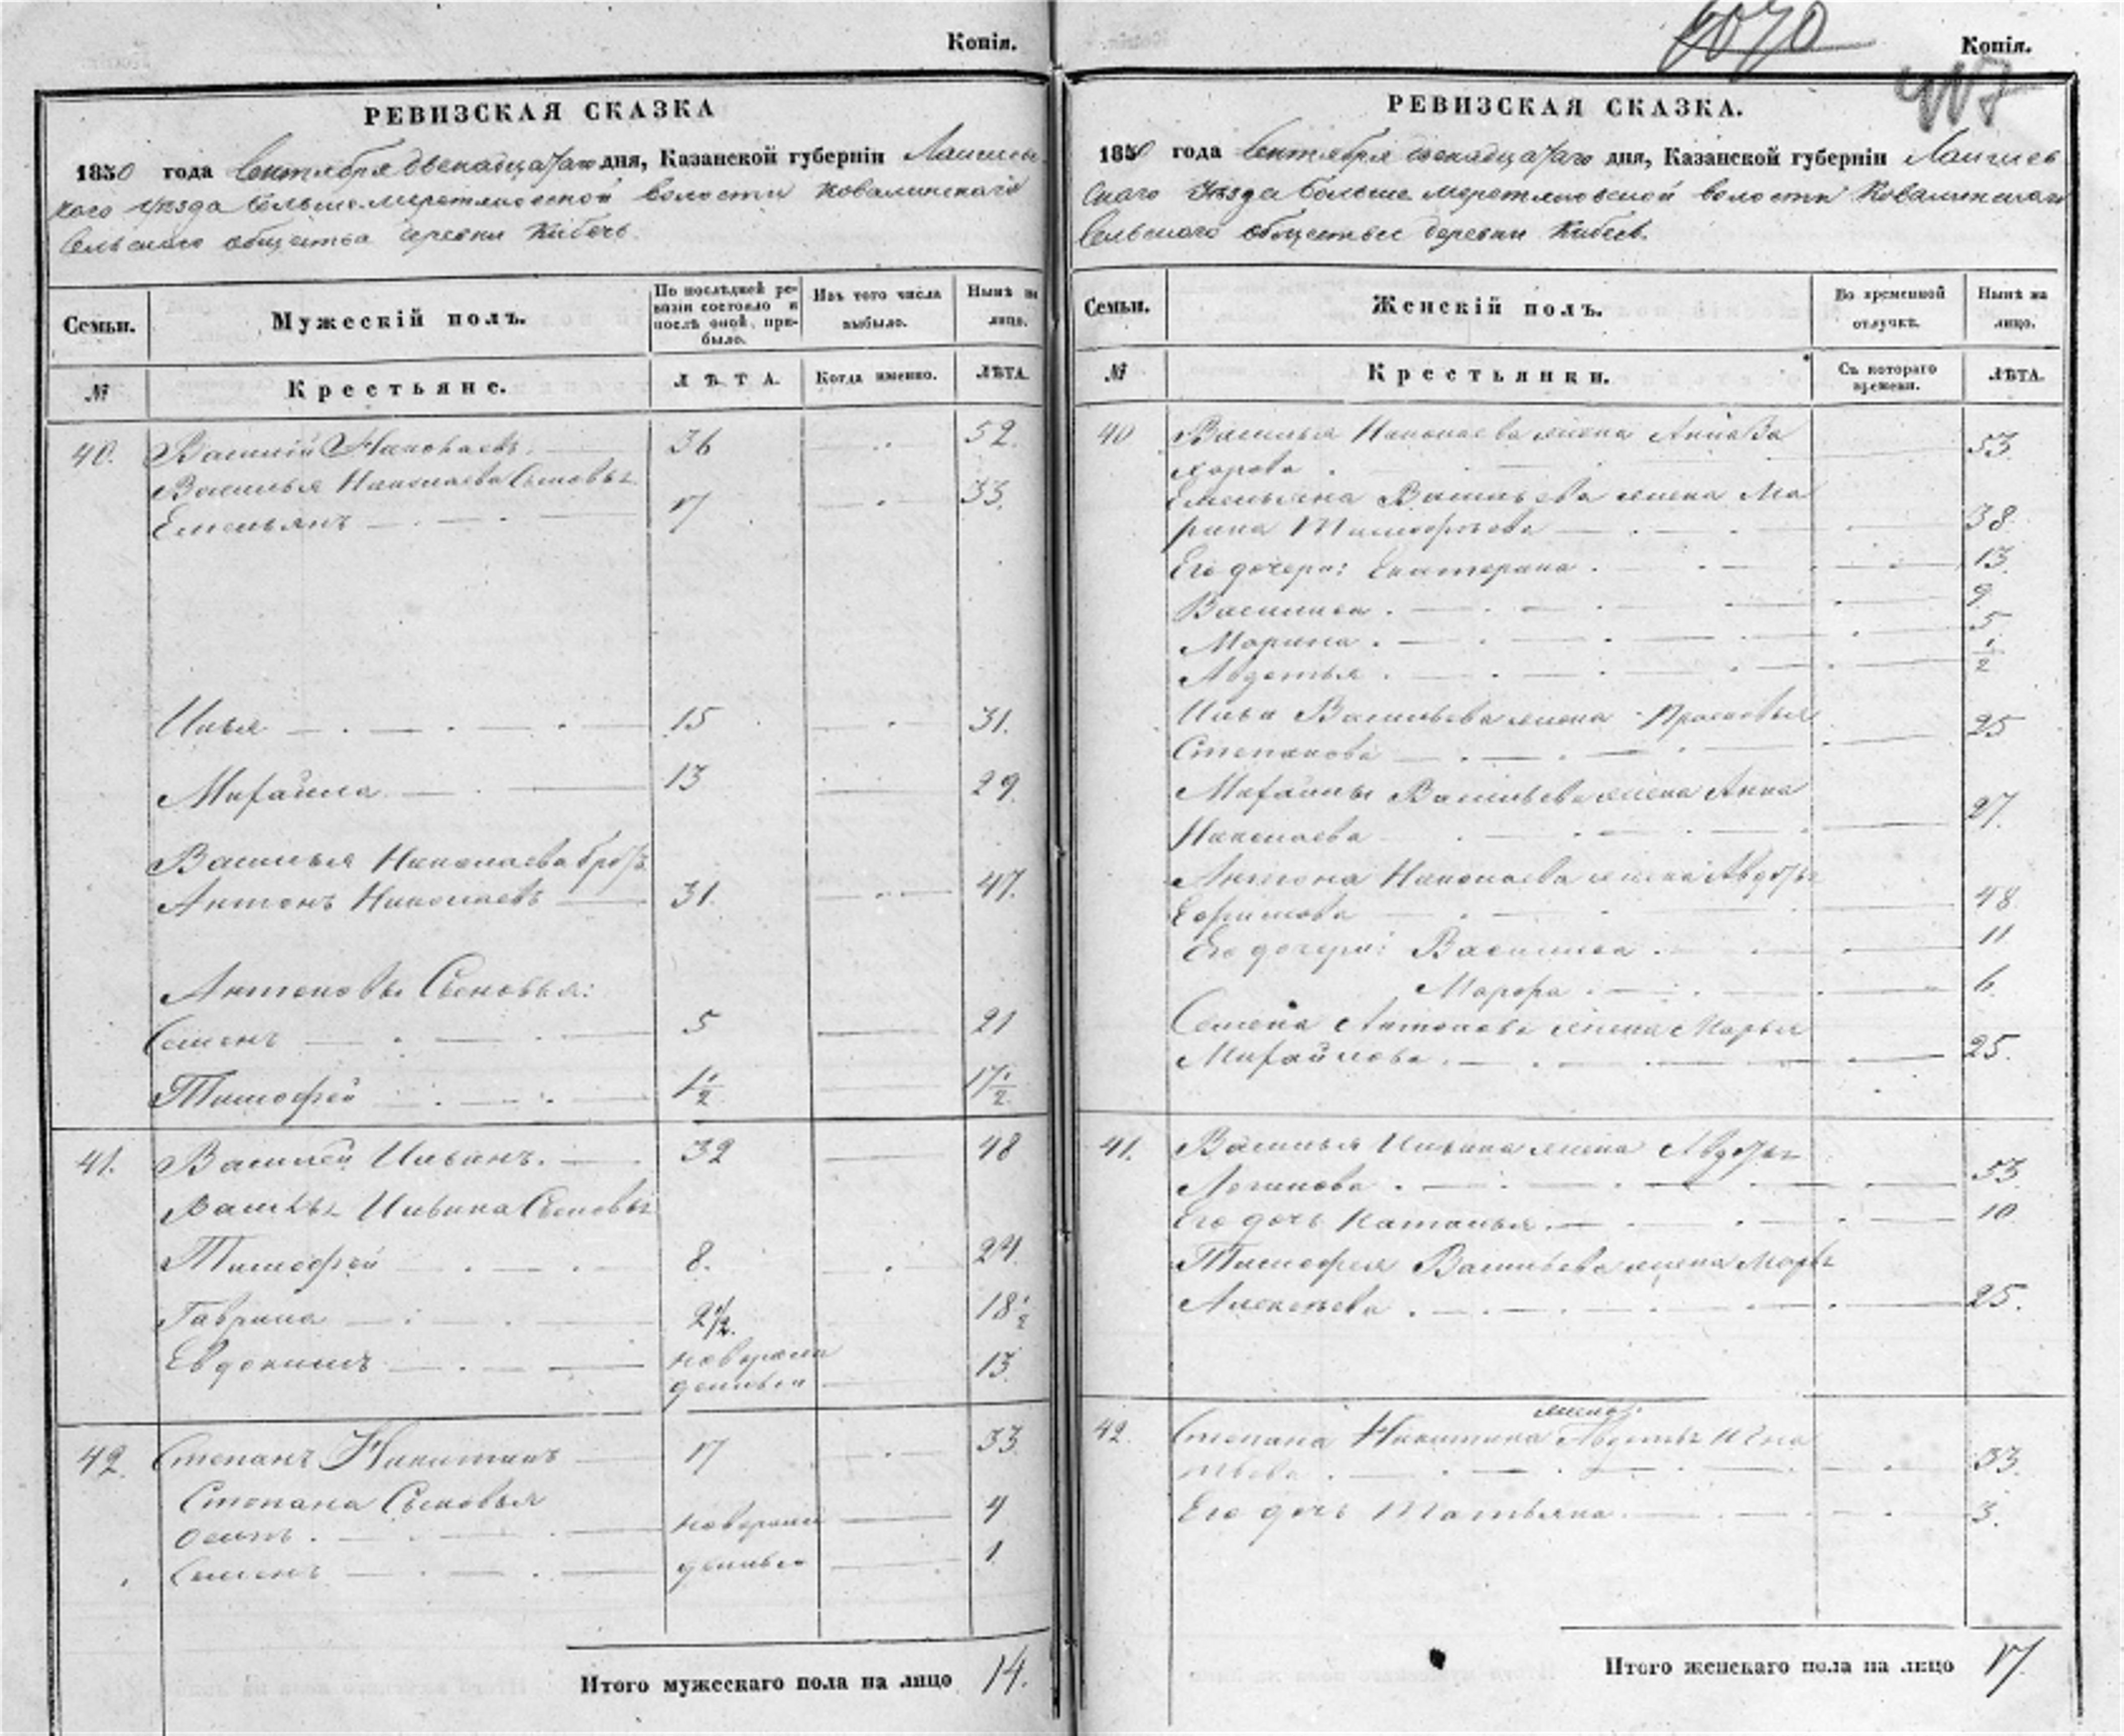 Копія.
РЕВИЗСКАЯ СКАЗКА
1850 года Сентября двенадцатаго дня, Казанской губерніи Лаишев
скаго уѣзда волости Ковалинскаго
Сельскаго общества деревни Кибечь.
Семьи.
Мужескій полъ.
По послѣдней ре-
визіи состояло и
послѣ оной, при-
было.
Изъ того числа
выбыло.
Нынѣ на
лицо.
№
Крестьяне.
ЛѢТА.
Когда именно.
ЛѢТА.
40. Василій Николаевъ. 36 52.
Василья Николаева Сыновья
Емельянъ 17 33.
Илья 15 31.
Михайла 13 29.
Василья Николаева братъ
Антонъ Николаевъ 31. 47.
Антоновы Сыновья:
Семенъ 5 21
Тимофей 1 1/2 17 1/2
41. Василей Ильинъ. 32 48
Ильина Сыновья
Тимофей 8. 24.
Гаврила 2 1/2. 18 1/2
Евдокимъ новорож
денный 13.
42. Степанъ Никитинъ 17 33.
Степана Сыновья
Осипъ. новорож 4
Семенъ денные 1
Итого мужескаго пола на лицо 14.
Копія.
4070
РЕВИЗСКАЯ СКАЗКА.
1850 года Сентября двенадцатаго дня, Казанской губерніи Лаишев
скаго Уѣзда волости Ковалинскаго
Сельскаго общества деревни Кибечь.
Семьи.
Женскій полъ.
Во временной
отлучкѣ.
Нынѣ на
лицо.
№
Крестьянки.
Съ котораго
времени.
ЛѢТА.
40 Василья Николаева жена Анна За
харова. 53.
Емельяна Васильева жена Ма
рина Тимофѣева 38.
Его дочери: Екатерина. 13.
Василиса. 9.
Марина. 5
Авдотья. 1/2
Ильи Васильева жена Прасковья 25
Степанова
Михайлы Васильева жена Анна
Николаева 27.
Антона Николаева жена Авдотья
Ефимова 48.
Его дочери: Василиса. 11
Марфа. 6.
Семена Антонова жена Марья
Михайлова. 25.
41. Василья Ильина жена Авдотья
Логинова. 53.
Его дочь Наталья. 10
Тимофея Васильева жена Марья
Алексѣева. 25.
жена
42. Степана Никитина Авдотья Игна
тьева. 33.
Его дочь Татьяна. 3.
Итого женскаго пола на лицо 17.